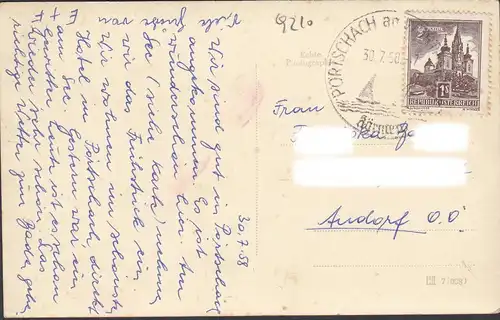 9210
PÖRTSCHACH am
30.7.58
Kärnten
REPUBLIK ÖSTERREICH
1S
Frau
Andorf O.Ö
30.7.58
Wir sind gut in Pörtschach
angekommen. Es ist
wunderschön hier. Am
See (siehe Karte) nehmen
wir das Frühstück ein.
Wir wohnen im schönsten
Hotel in Pörtschach direkt
am See. Gestern war ein
Gewitter heute ist es schon
wieder sehr schön. Das
richtige Wetter zum Baden gehen
Viele Grüße von